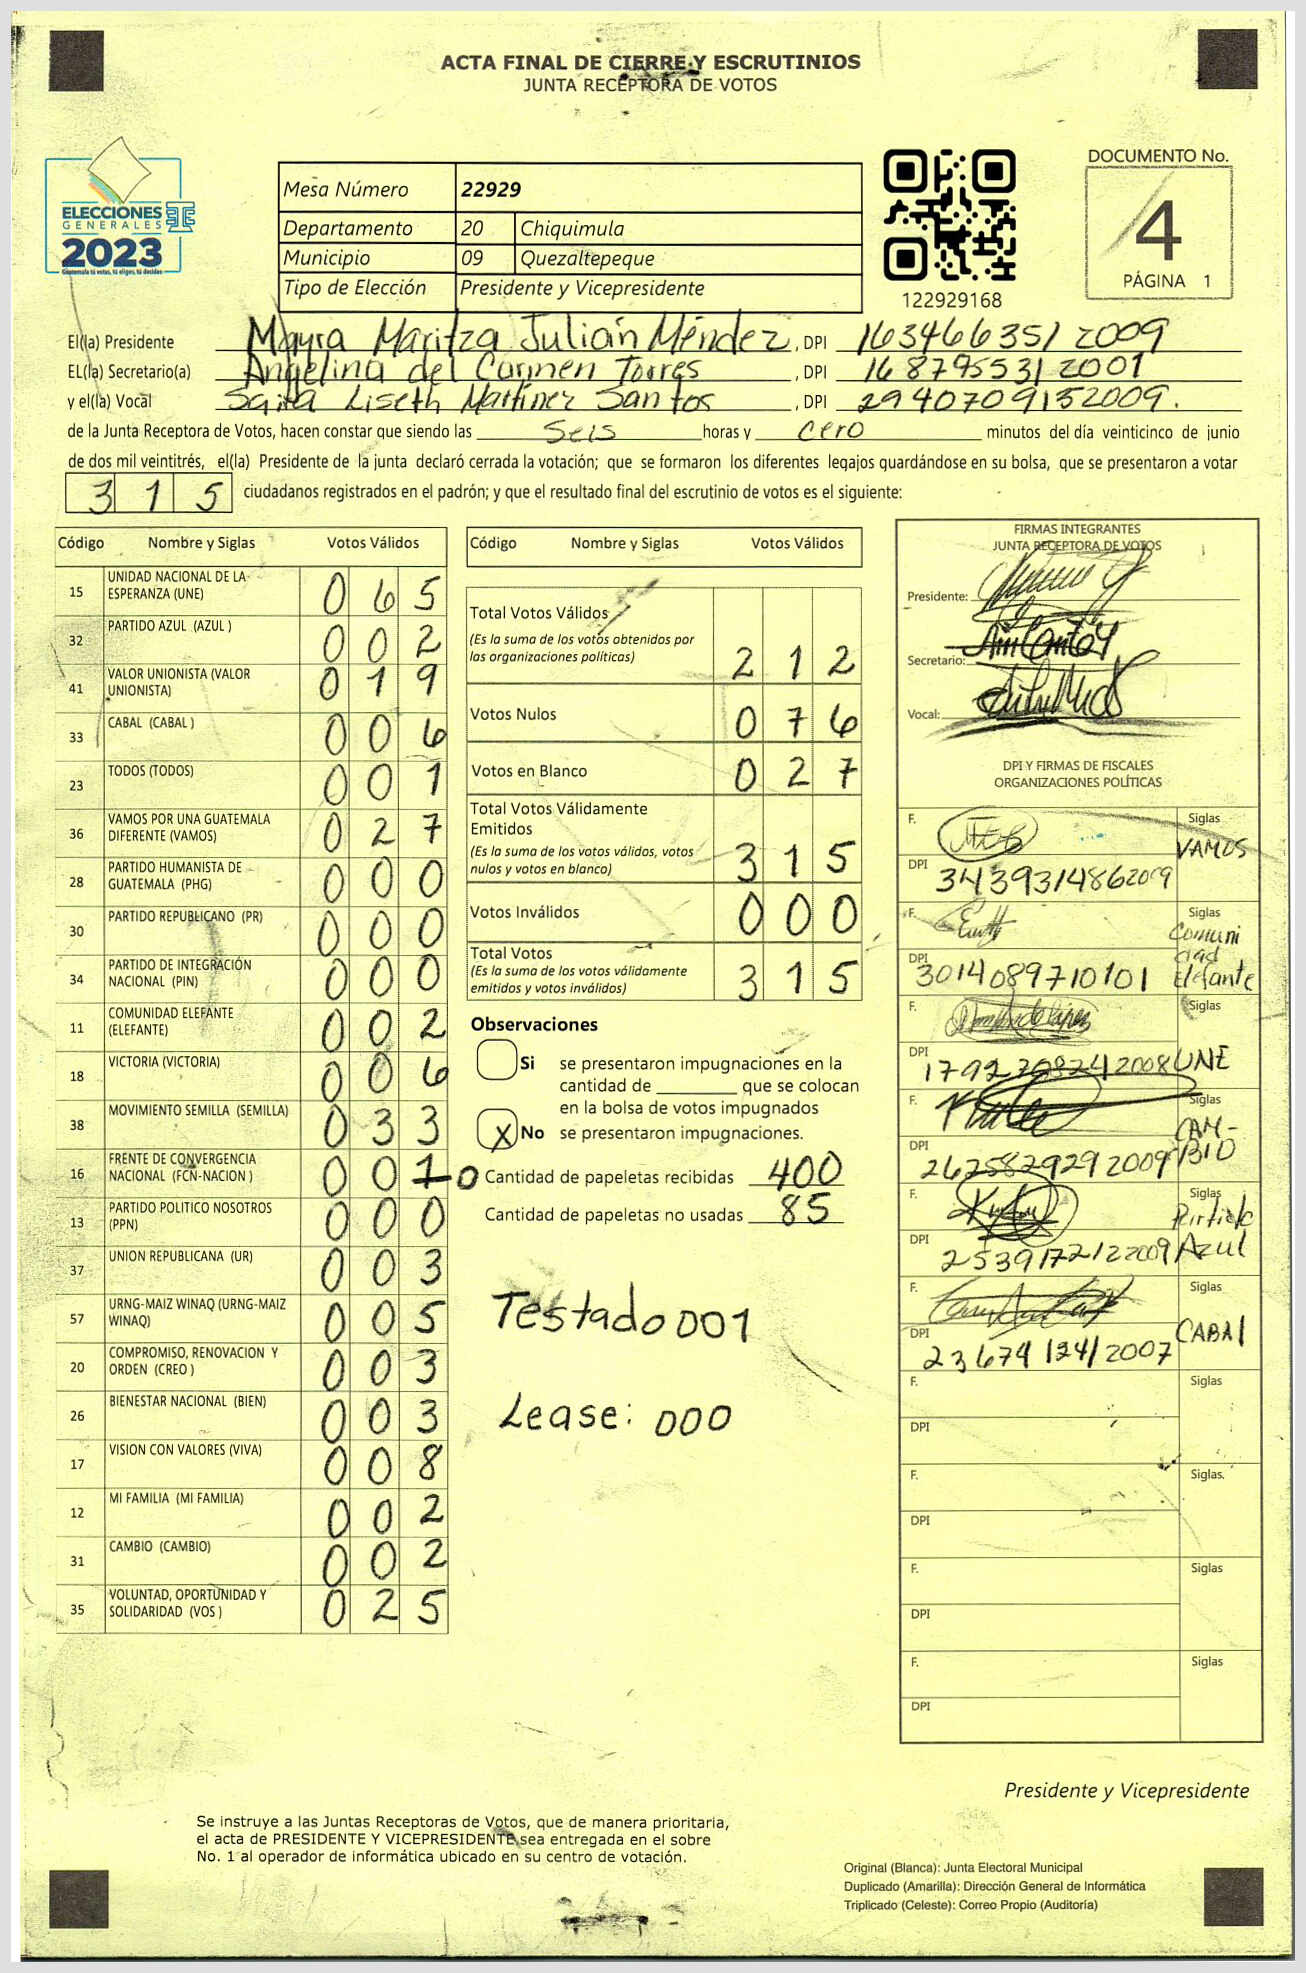 ACTA FINAL DE CIERRE Y ESCRUTINIOS
JUNTA RECEPTORA DE VOTOS
ELECCIONES
GENERALES
2023
Guatemala tú votas, tú eliges, tú decides
Mesa Número 22929
Departamento 20 Chiquimula
Municipio 09 Quezaltepeque
Tipo de Elección Presidente y Vicepresidente
122929168
DOCUMENTO No.
4
PÁGINA 1
El(la) Presidente Mayra Maritza Julián Méndez, DPI 1634663512009
EL(la) Secretario(a) Angelina del Carmen Torres, DPI 1687955312001
y el(la) Vocal Liseth Martínez Santos, DPI 2940709152009.
de la Junta Receptora de Votos, hacen constar que siendo las seis horas y cero minutos del día veinticinco de junio
de dos mil veintitrés, el(la) Presidente de la junta declaró cerrada la votación; que se formaron los diferentes legajos quardándose en su bolsa, que se presentaron a votar
315 ciudadanos registrados en el padrón; y que el resultado final del escrutinio de votos es el siguiente:
Código Nombre y Siglas Votos Válidos
15 UNIDAD NACIONAL DE LA ESPERANZA (UNE) 065
32 PARTIDO AZUL (AZUL ) 002
41 VALOR UNIONISTA (VALOR UNIONISTA) 019
33 CABAL (CABAL ) 006
23 TODOS (TODOS) 001
36 VAMOS POR UNA GUATEMALA DIFERENTE (VAMOS) 027
28 PARTIDO HUMANISTA DE GUATEMALA (PHG) 000
30 PARTIDO REPUBLICANO (PR) 000
34 PARTIDO DE INTEGRACIÓN NACIONAL (PIN) 000
11 COMUNIDAD ELEFANTE (ELEFANTE) 002
18 VICTORIA (VICTORIA) 006
38 MOVIMIENTO SEMILLA (SEMILLA) 033
16 FRENTE DE CONVERGENCIA NACIONAL (FCN-NACION ) 001 0
13 PARTIDO POLITICO NOSOTROS (PPN) 000
37 UNION REPUBLICANA (UR) 003
57 URNG-MAIZ WINAQ (URNG-MAIZ WINAQ) 005
20 COMPROMISO, RENOVACION Y ORDEN (CREO ) 003
26 BIENESTAR NACIONAL (BIEN) 003
17 VISION CON VALORES (VIVA) 008
12 MI FAMILIA (MI FAMILIA) 002
31 CAMBIO (CAMBIO) 002
35 VOLUNTAD, OPORTUNIDAD Y SOLIDARIDAD (VOS ) 025
Código Nombre y Siglas Votos Válidos
Total Votos Válidos 212
(Es la suma de los votos obtenidos por
las organizaciones políticas)
Votos Nulos 076
Votos en Blanco 027
Total Votos Válidamente
Emitidos 315
(Es la suma de los votos válidos, votos
nulos y votos en blanco)
Votos Inválidos 000
Total Votos 315
(Es la suma de los votos válidamente
emitidos y votos inválidos)
Observaciones
Si se presentaron impugnaciones en la
cantidad de ________ que se colocan
en la bolsa de votos impugnados
X No se presentaron impugnaciones.
Cantidad de papeletas recibidas 400
Cantidad de papeletas no usadas 85
Testado 001
Lease: 000
FIRMAS INTEGRANTES
JUNTA RECEPTORA DE VOTOS
Presidente:
Secretario:
Vocal:
DPI Y FIRMAS DE FISCALES
ORGANIZACIONES POLÍTICAS
F. Siglas VAMOS
DPI 3439314862009
F. Siglas Comunidad Elefante
DPI 3014089710101
F. Siglas UNE
DPI 1792708242008
F. Siglas CAMBIO
DPI 2625829292009
F. Siglas Partido Azul
DPI 2539172122009
F. Siglas CABAL
DPI 2367412412007
F. Siglas
DPI
F. Siglas.
DPI
F. Siglas
DPI
F. Siglas
DPI
Presidente y Vicepresidente
Se instruye a las Juntas Receptoras de Votos, que de manera prioritaria,
el acta de PRESIDENTE Y VICEPRESIDENTE sea entregada en el sobre
No. 1 al operador de informática ubicado en su centro de votación.
Original (Blanca): Junta Electoral Municipal
Duplicado (Amarilla): Dirección General de Informática
Triplicado (Celeste): Correo Propio (Auditoría)